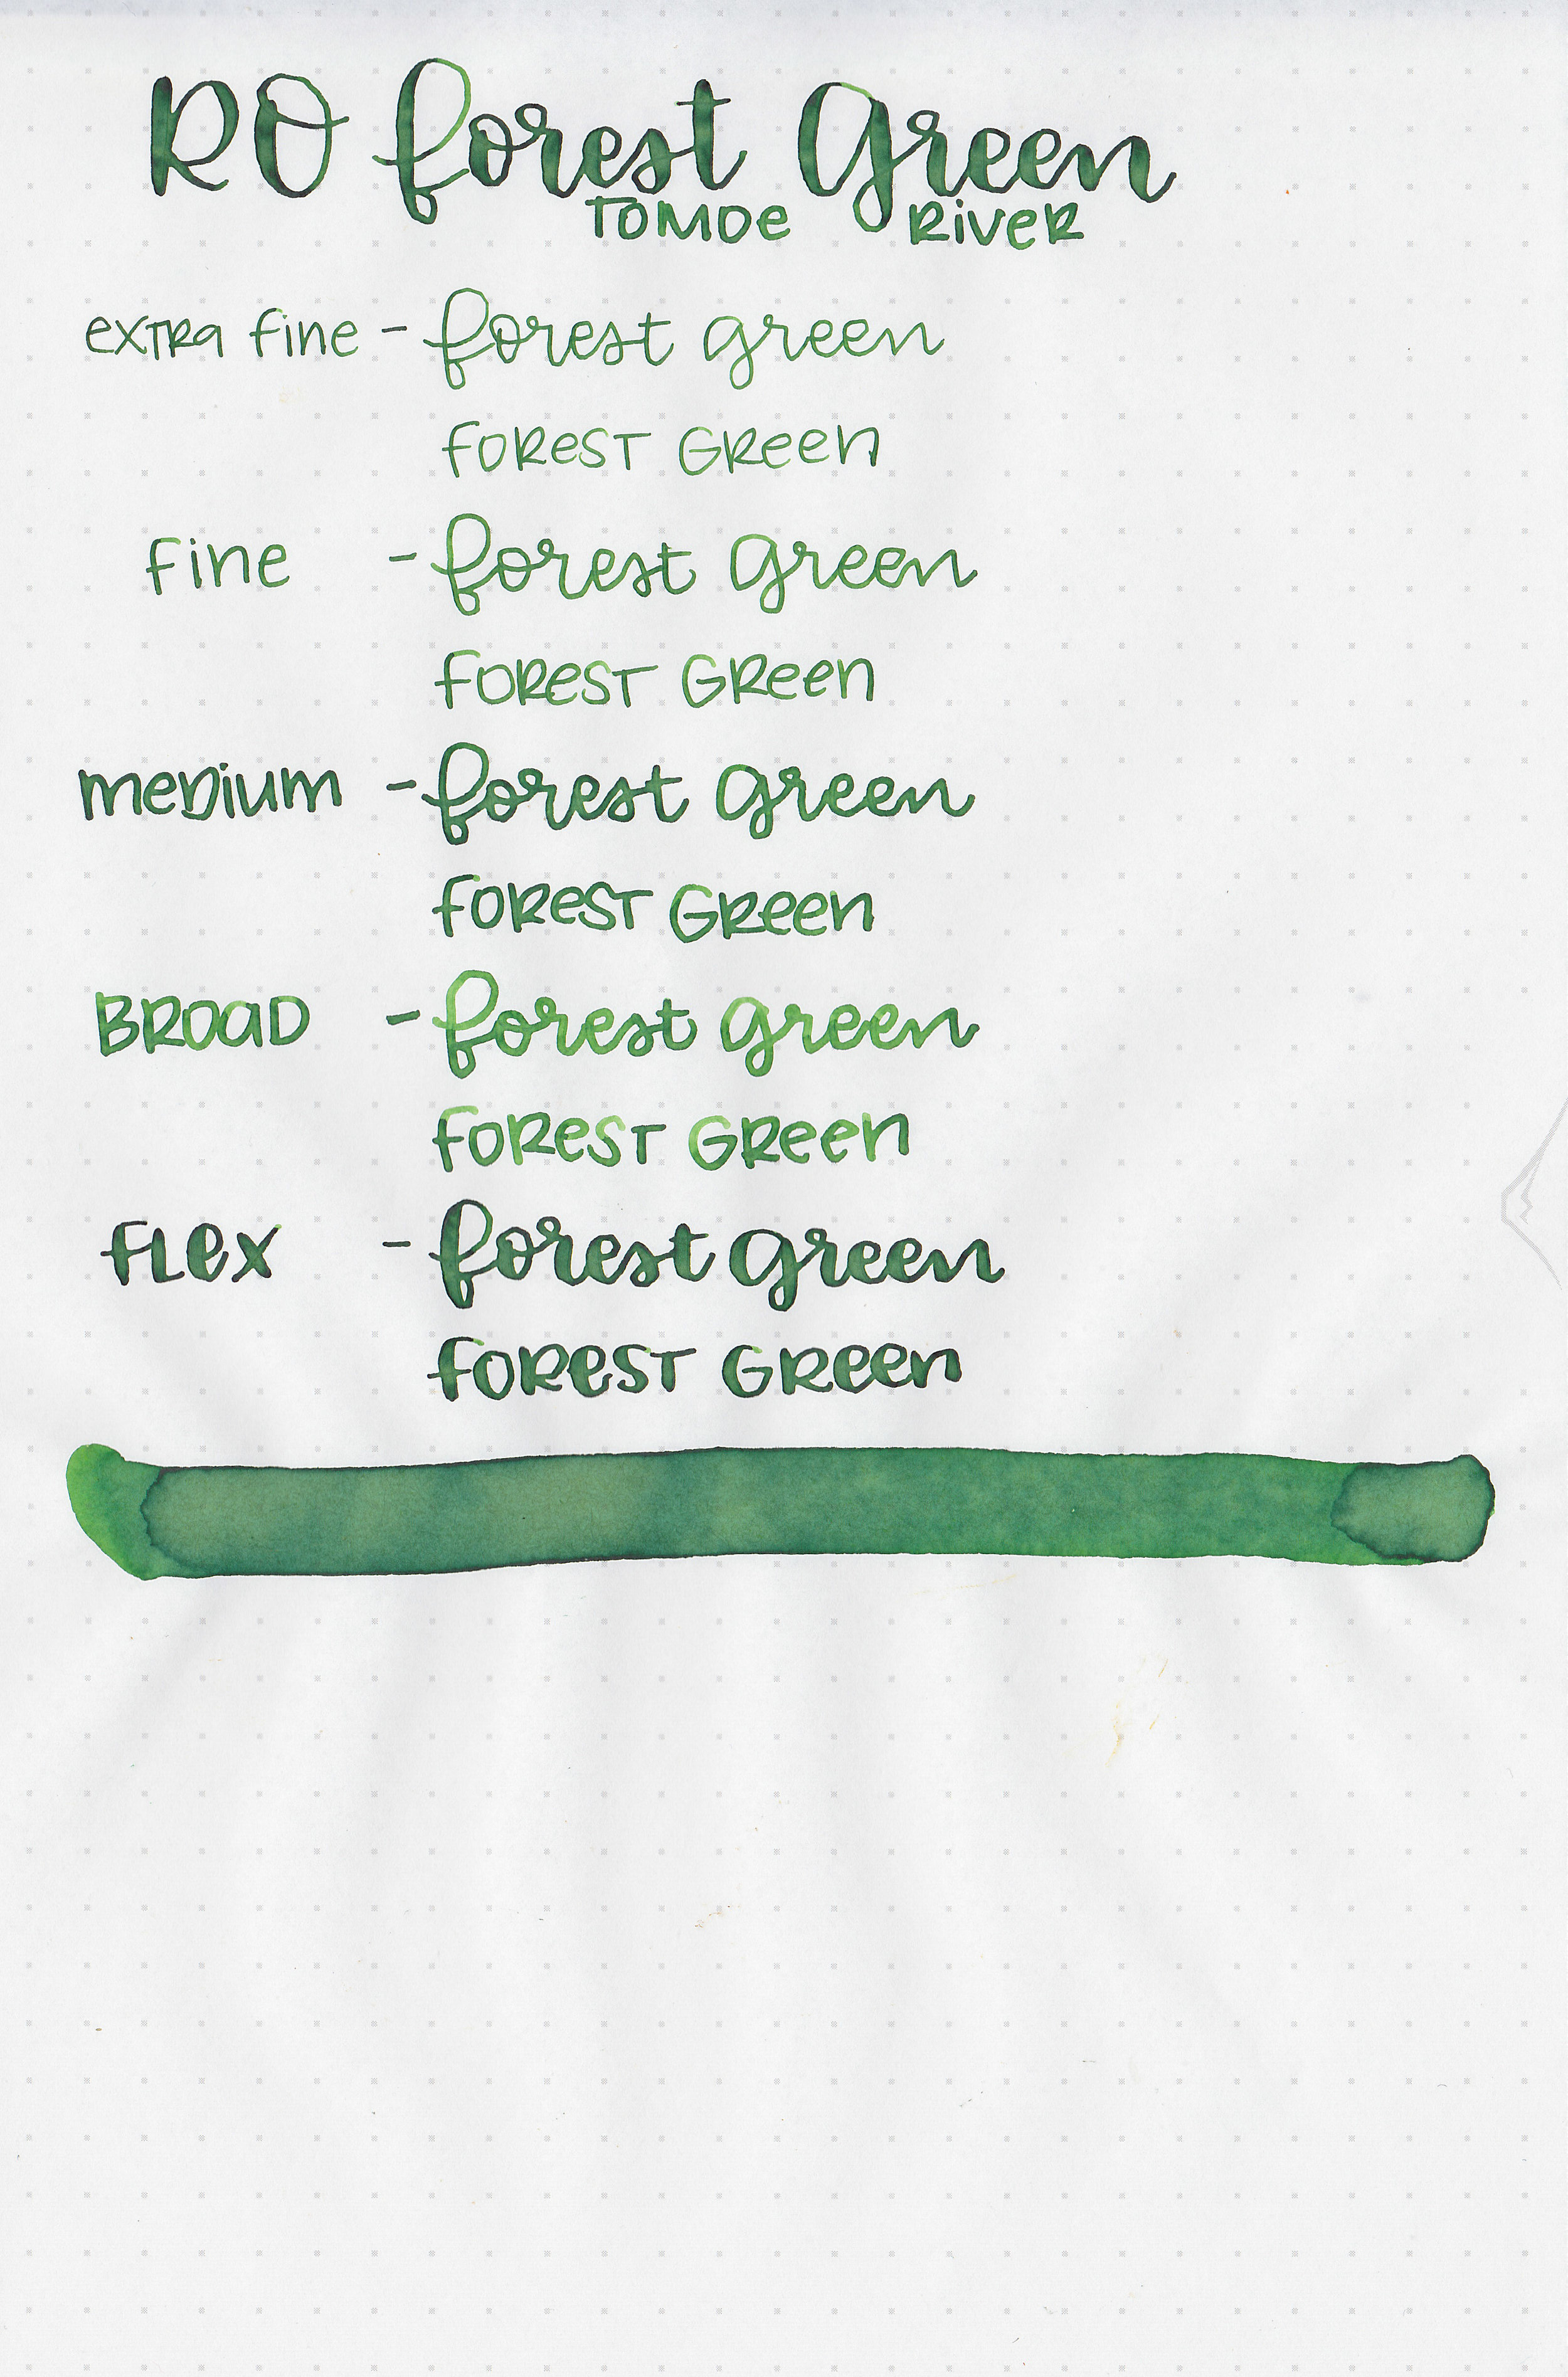 RO forest Green
Tomoe River
extra fine - forest green
Forest Green
fine - forest green
Forest Green
medium - forest green
Forest Green
Broad - forest green
Forest Green
Flex - forest green
Forest Green